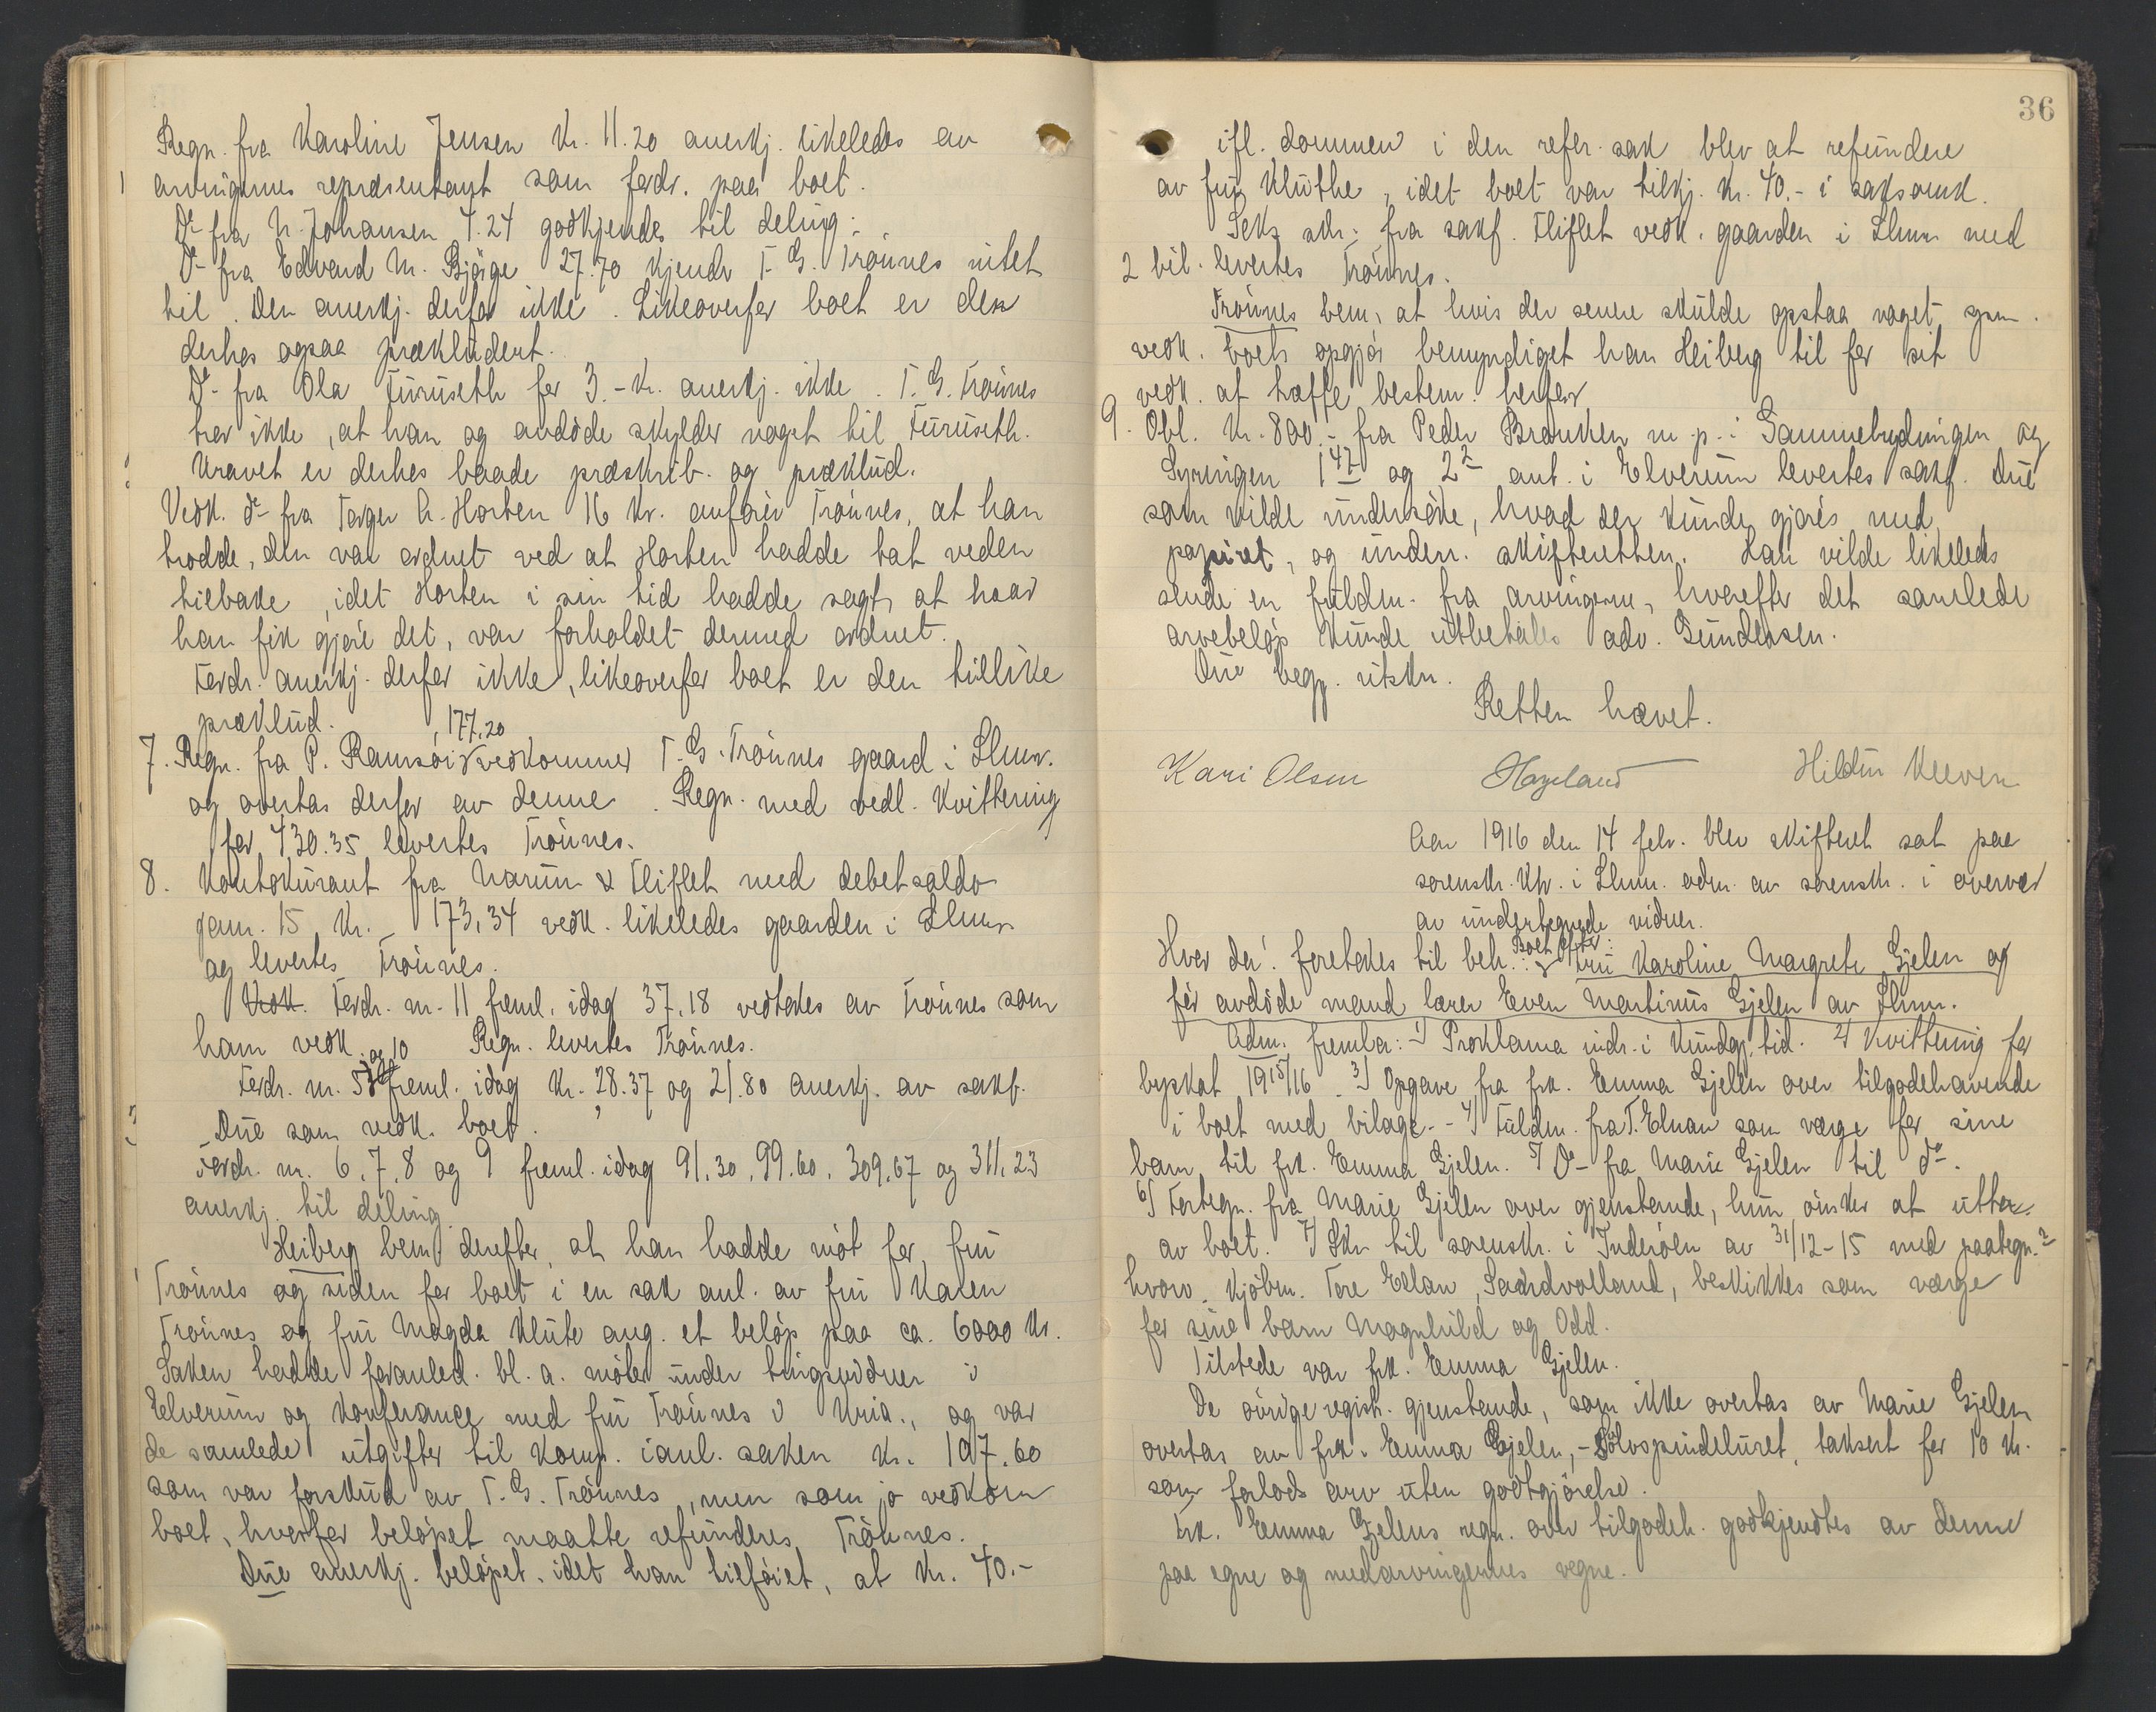 Regn. fra Karoline Jensen Kr. 11.20 anerkj. likeledes av
arvingernes repræsentant som fordr. paa boet.
Do fra N. Johansen 4.24 godkjendes til deling.
Do fra Edvard M. Bjørge 27.70 kjendr T. G. Trønnes intet
til. Den anerkj. derfor ikke. Likeoverfor boet er den
derhos ogsaa prækludert.
Do fra Ola Furuseth for 3.- kr. anerkj. ikke. T. G. Trønnes
tror ikke, at han og avdøde skylder noget til Furuseth.
Kravet er derhos baade præskrib. og præklud.
Vedk. do fra Torger Horten 16 kr. anfører Trønnes, at han
trodde, den var ordnet ved at Horten hadde tat veden
tilbake, idet Horten i sin tid hadde sagt, at hvad
han fik gjøre det, var forholdet dermed ordnet.
Fordr. anerkj. derfor ikke, likeoverfor boet er den tillike
præklud.
177,20
7. Regn. fra P. Ramsøi vedkommer T. G. Trønnes gaard i Lhmr.
og overtas derfor av denne. Regn. med vedl. kvittering
for 430.35 levertes Trønnes.
8. Kontokurant fra Narum & Fliflet med debetsaldo
jan. 15 Kr. 173,34 vedk. likeledes gaarden i Lhmr
og levertes Trønnes.
Vedk. Fordr. nr. 11 freml. idag 37.18 vedtokes av Trønnes som
ham vedk. Regn. levertes Trønnes.
og 10
Fordr. nr. 5 freml. idag kr. 28.37 og 21.80 anerkj. av sakf.
Due som vedk. boet.
Fordr. nr. 6, 7, 8 og 9 freml. idag 91.30, 99.60, 309.67 og 311.23
anerkj. til deling.
Heiberg bem. derefter, at han hadde møt for fru
Trønnes og siden for boet i en sak anl. av fru Karen
Trønnes og fru Magda Klute ang. et beløp paa ca. 6000 kr.
Saken hadde foranled. bl. a. møter under bingsvidner i
Elverum og konferance med fru Trønnes i Kria., og var
de samlede utgifter til komp. i anl. saken kr. 197.60
som var forskud av T. G. Trønnes, men som jo vedkom
boet, hvorfor beløpet maatte refunderes Trønnes.
Due anerkj. beløpet, idet han tilføiet, at kr. 40.-
36
ifl. dommen i den refer. sak blev at refundere
av fru Kluthe, idet boet var tilkj. kr. 40.- i saksomk.
Seks skr. fra sakf. Fliflet vedk. gaarden i Lhmr med
2 bil. levertes Trønnes.
Trønnes bem. at hvis der senere skulde opstaa noget spm.
vedk. boets opgjør bemyndiget han Heiberg til for sit
vedk. at træffe bestem. herfor
9. Obl. kr. 800.- fra Peder Braaken m. p. i
og 2 ant. i Elverum levertes sakf. Due
som vilde undersøke, hvad der kunde gjøres med
papiret, og underr. skifteretten. Han vilde likeledes
sende en fuldm. fra arvingerne, hvorefter det samlede
arvebeløp kunde utbetales adv. Gundersen.
Due begj. utskr.
Retten hævet.
Kari Olsen Hageland Hildur Kleven
Aar 1916 den 14 febr. blev skifteret sat paa
sorenskr. ktr. i Lhmr. adm. av sorenskr. i overvær
av undertegnede vidner.
Boet efter:
Hvor da: foretokes til beh.: fru Karoline Margrete Gjelen og
før avdøde mand lærer Even Martinus Gjelen av Lhmr.
Adm. fremla: 1) Proklama indr. i Kundgj. tid. 2) Kvittering for
byskat 1915/16. 3) Opgave fra frk. Emma Gjelen over tilgodehavende
i boet med bilage. - 4) Fuldm. fra T. Elnan som værge for sine
barn, til frk. Emma Gjelen. 5) Do fra Marie Gjelen til do.
6) Fortegn. fra Marie Gjelen over gjenstande, hun ønsker at utta
av boet. 7) Skr til sorenskr. i Inderøen av 31/12-15 med paategn.
hvorv. kjøbm. Tore Eelan, Sandvolland, beskikkes som værge
for sine barn Magnhild og Odd.
Tilstede var frk. Emma Gjelen.
De øvrige registr. gjenstande, som ikke overtas av Marie Gjelen
overtas av frk. Emma Gjelen, - Sølvspindeluret, taksert for 10 kr.
som forlods arv uten godtgjørelse.
Frk. Emma Gjelens regn. over tilgodeh. godkjendtes av denne
paa egne og medarvingernes vegne.